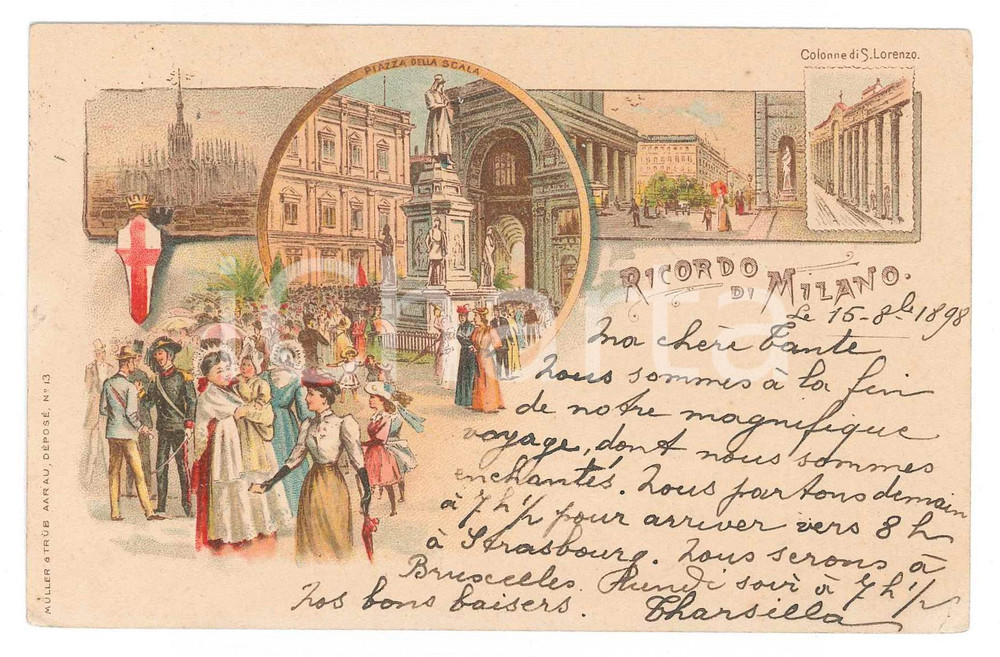 Colonne di S. Lorenzo.
PIAZZA DELLA SCALA
RICORDO DI MILANO.
Le 15-8bre 1898
Ma chère Tante
Nous sommes à la fin
de notre magnifique
voyage, dont nous sommes
enchantés. Nous partons demain
à 7 h ½ pour arriver vers 8 h
à Strasbourg. Nous serons à
Bruxelles lundi soir à 7 h ½
Nos bons baisers. Tharsilla
MÜLLER & TRÜB AARAU, DÉPOSÉ, No 13